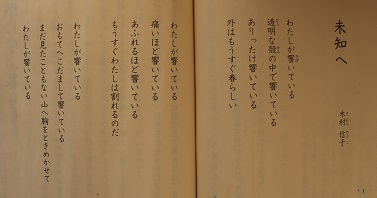 未知へ
木村 信子
わたしが響いている
透明な殻の中で響いている
ありったけ響いている
外はもうすぐ春らしい
わたしが響いている
痛いほど響いている
あふれるほど響いている
もうすぐわたしは割れるのだ
わたしが響いている
おもてへこだまして響いている
まだ見たこともない山へ胸をときめかせて
わたしが響いている